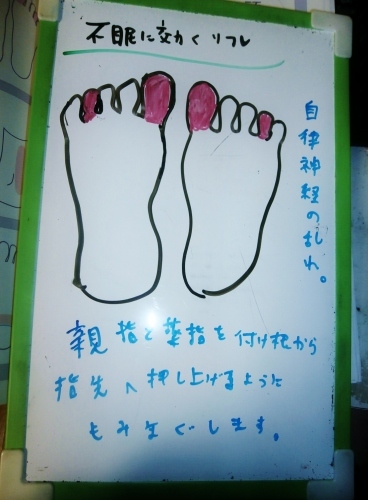 不眠に効くリフレ
自律神経の乱れ。
親指と薬指を付け根から
指先へ押し上げるように
もみほぐします。